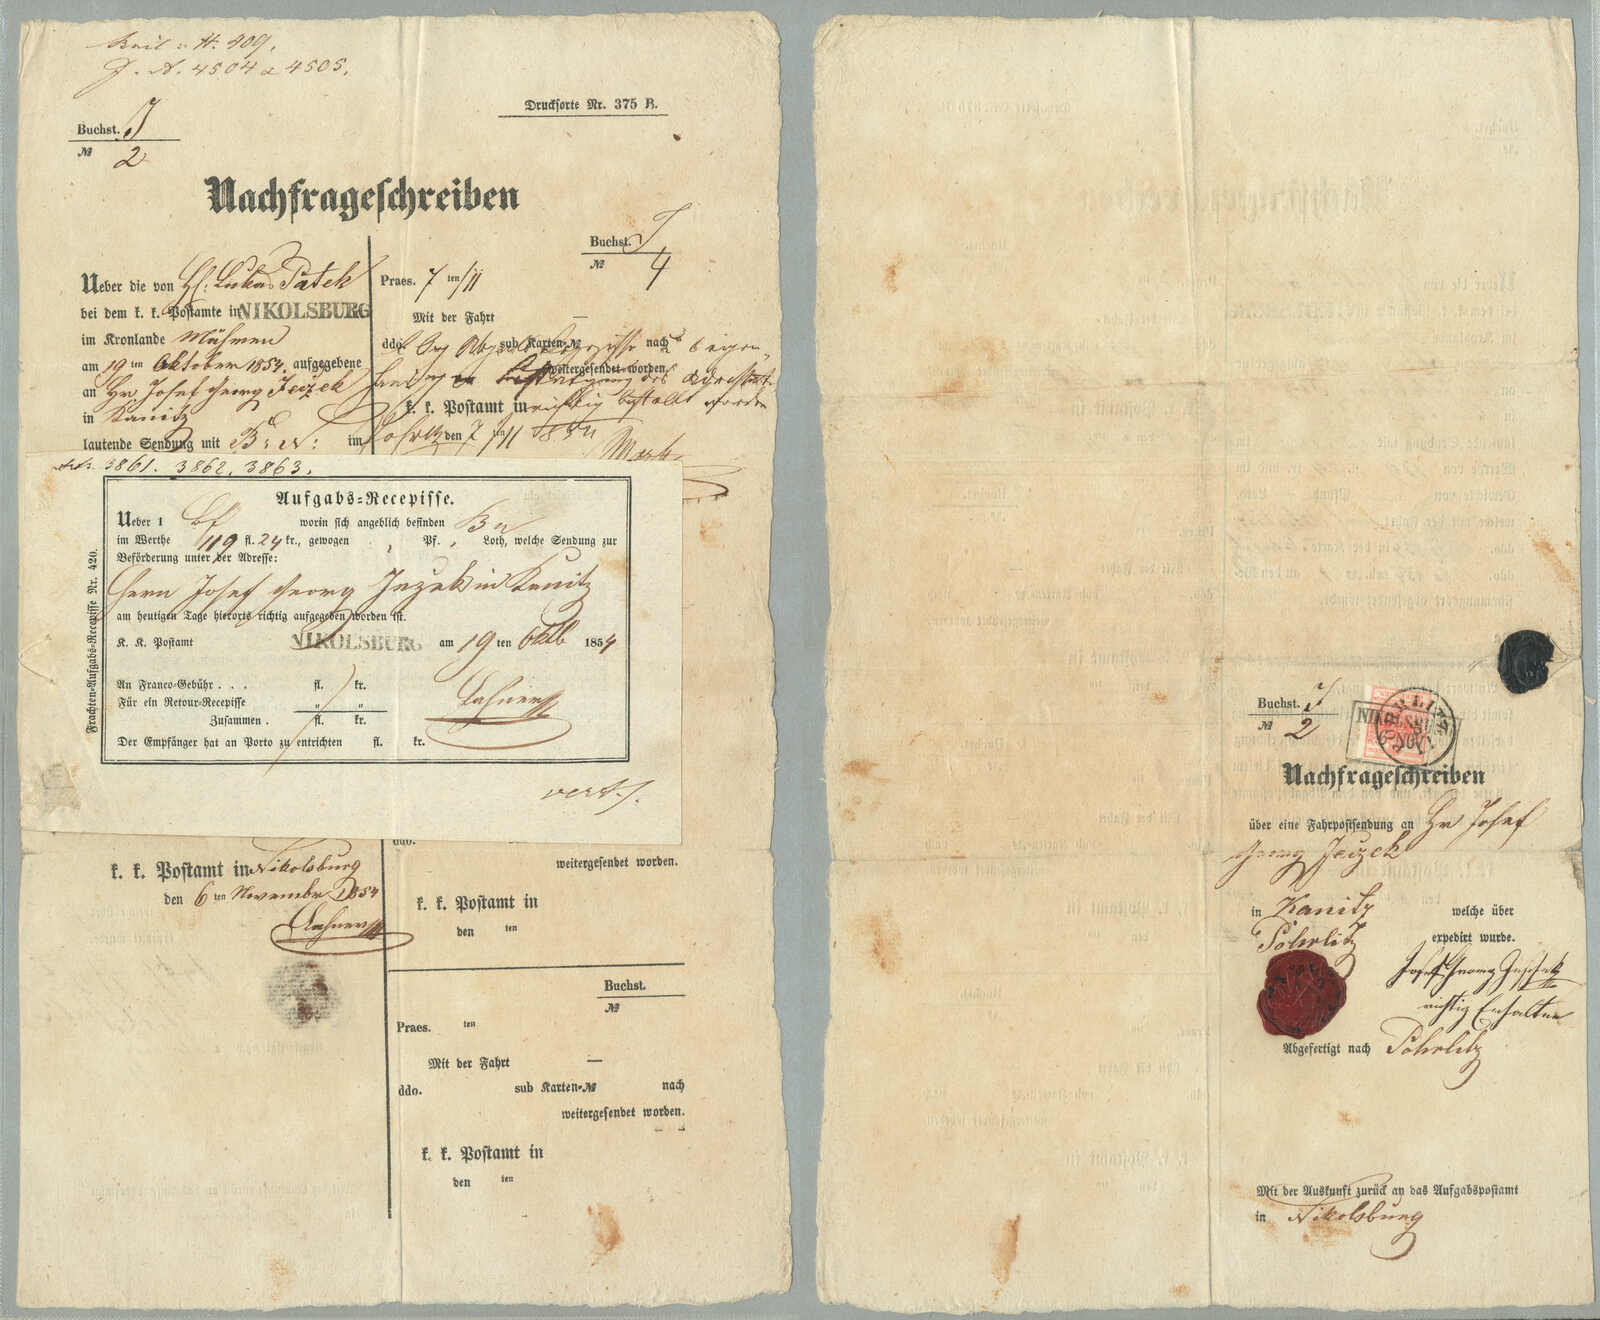 N. 4504 a 4505.
Drucksorte Nr. 375 B.
Buchst. J
№ 2
Nachfrageschreiben
Ueber die von H. Lukas Patek
bei dem k. k. Postamte in NIKOLSBURG
im Kronlande Mähren
am 19 ten Oktober 1854 aufgegebene
an Hr Josef Georg Jeizek
in Kanitz
lautende Sendung mit B: N: im
Buchst. J
№ 4
Praes. 7 ten/11
Mit der Fahrt —
ddo. sub Karten-№ nach
weitergesendet worden.
k. k. Postamt in richtig bestellt worden
Pohrlitz den 7 ten/11 1854
3861. 3862. 3863.
Frachten-Aufgabs-Recepisse Nr. 420.
Aufgabs-Recepisse.
Ueber 1 Bf worin sich angeblich befinden Bn
im Werthe 119 fl. 24 kr., gewogen , Pf. , Loth, welche Sendung zur
Beförderung unter der Adresse:
Herrn Josef Georg Jezek in Kanitz
am heutigen Tage hierorts richtig aufgegeben worden ist.
K. K. Postamt NIKOLSBURG am 19 ten Oktb 1854
An Franco-Gebühr . . . fl. kr.
Für ein Retour-Recepisse " "
Zusammen . fl. kr.
Lahner
Der Empfänger hat an Porto zu entrichten fl. kr.
vert.
k. k. Postamt in Nikolsburg
den 6 ten November 1854
Lahner
ddo.
weitergesendet worden.
k. k. Postamt in
den ten
Buchst.
№
Praes. ten
Mit der Fahrt —
ddo. sub Karten-№ nach
weitergesendet worden.
k. k. Postamt in
den ten
Buchst. J
№ 2
NIKOLSBURG
POHRLITZ
NOV
Nachfrageschreiben
über eine Fahrpostsendung an Hr Josef
Georg Jeizek
in Kanitz welche über
Pohrlitz expedirt wurde.
Josef Georg
richtig Erhalten
Abgefertigt nach Pohrlitz
Mit der Auskunft zurück an das Aufgabspostamt
in Nikolsburg